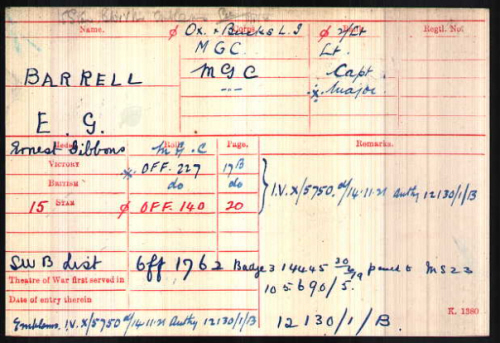 Name. Corps. Rank. Regtl. No.
BARRELL
E. G.
Ernest Gibbons
φ Ox. & Bucks L.I φ 2/Lt
MGC Lt.
MGC Capt
-"- x Major
Medal. Roll. Page. Remarks.
M.G.C
VICTORY x OFF. 227 17B
BRITISH do do
I.V. X/5750 d/14.11.21 Authy 12130/1/B
15 STAR φ OFF. 140 20
SWB List Off 1762 Badge 314445 30/3/19 MS23
105690/5.
Theatre of War first served in
Date of entry therein
K. 1380
Emblems. I.V. X/5750 d/14.11.21 Authy 12130/1/B
12130/1/B.